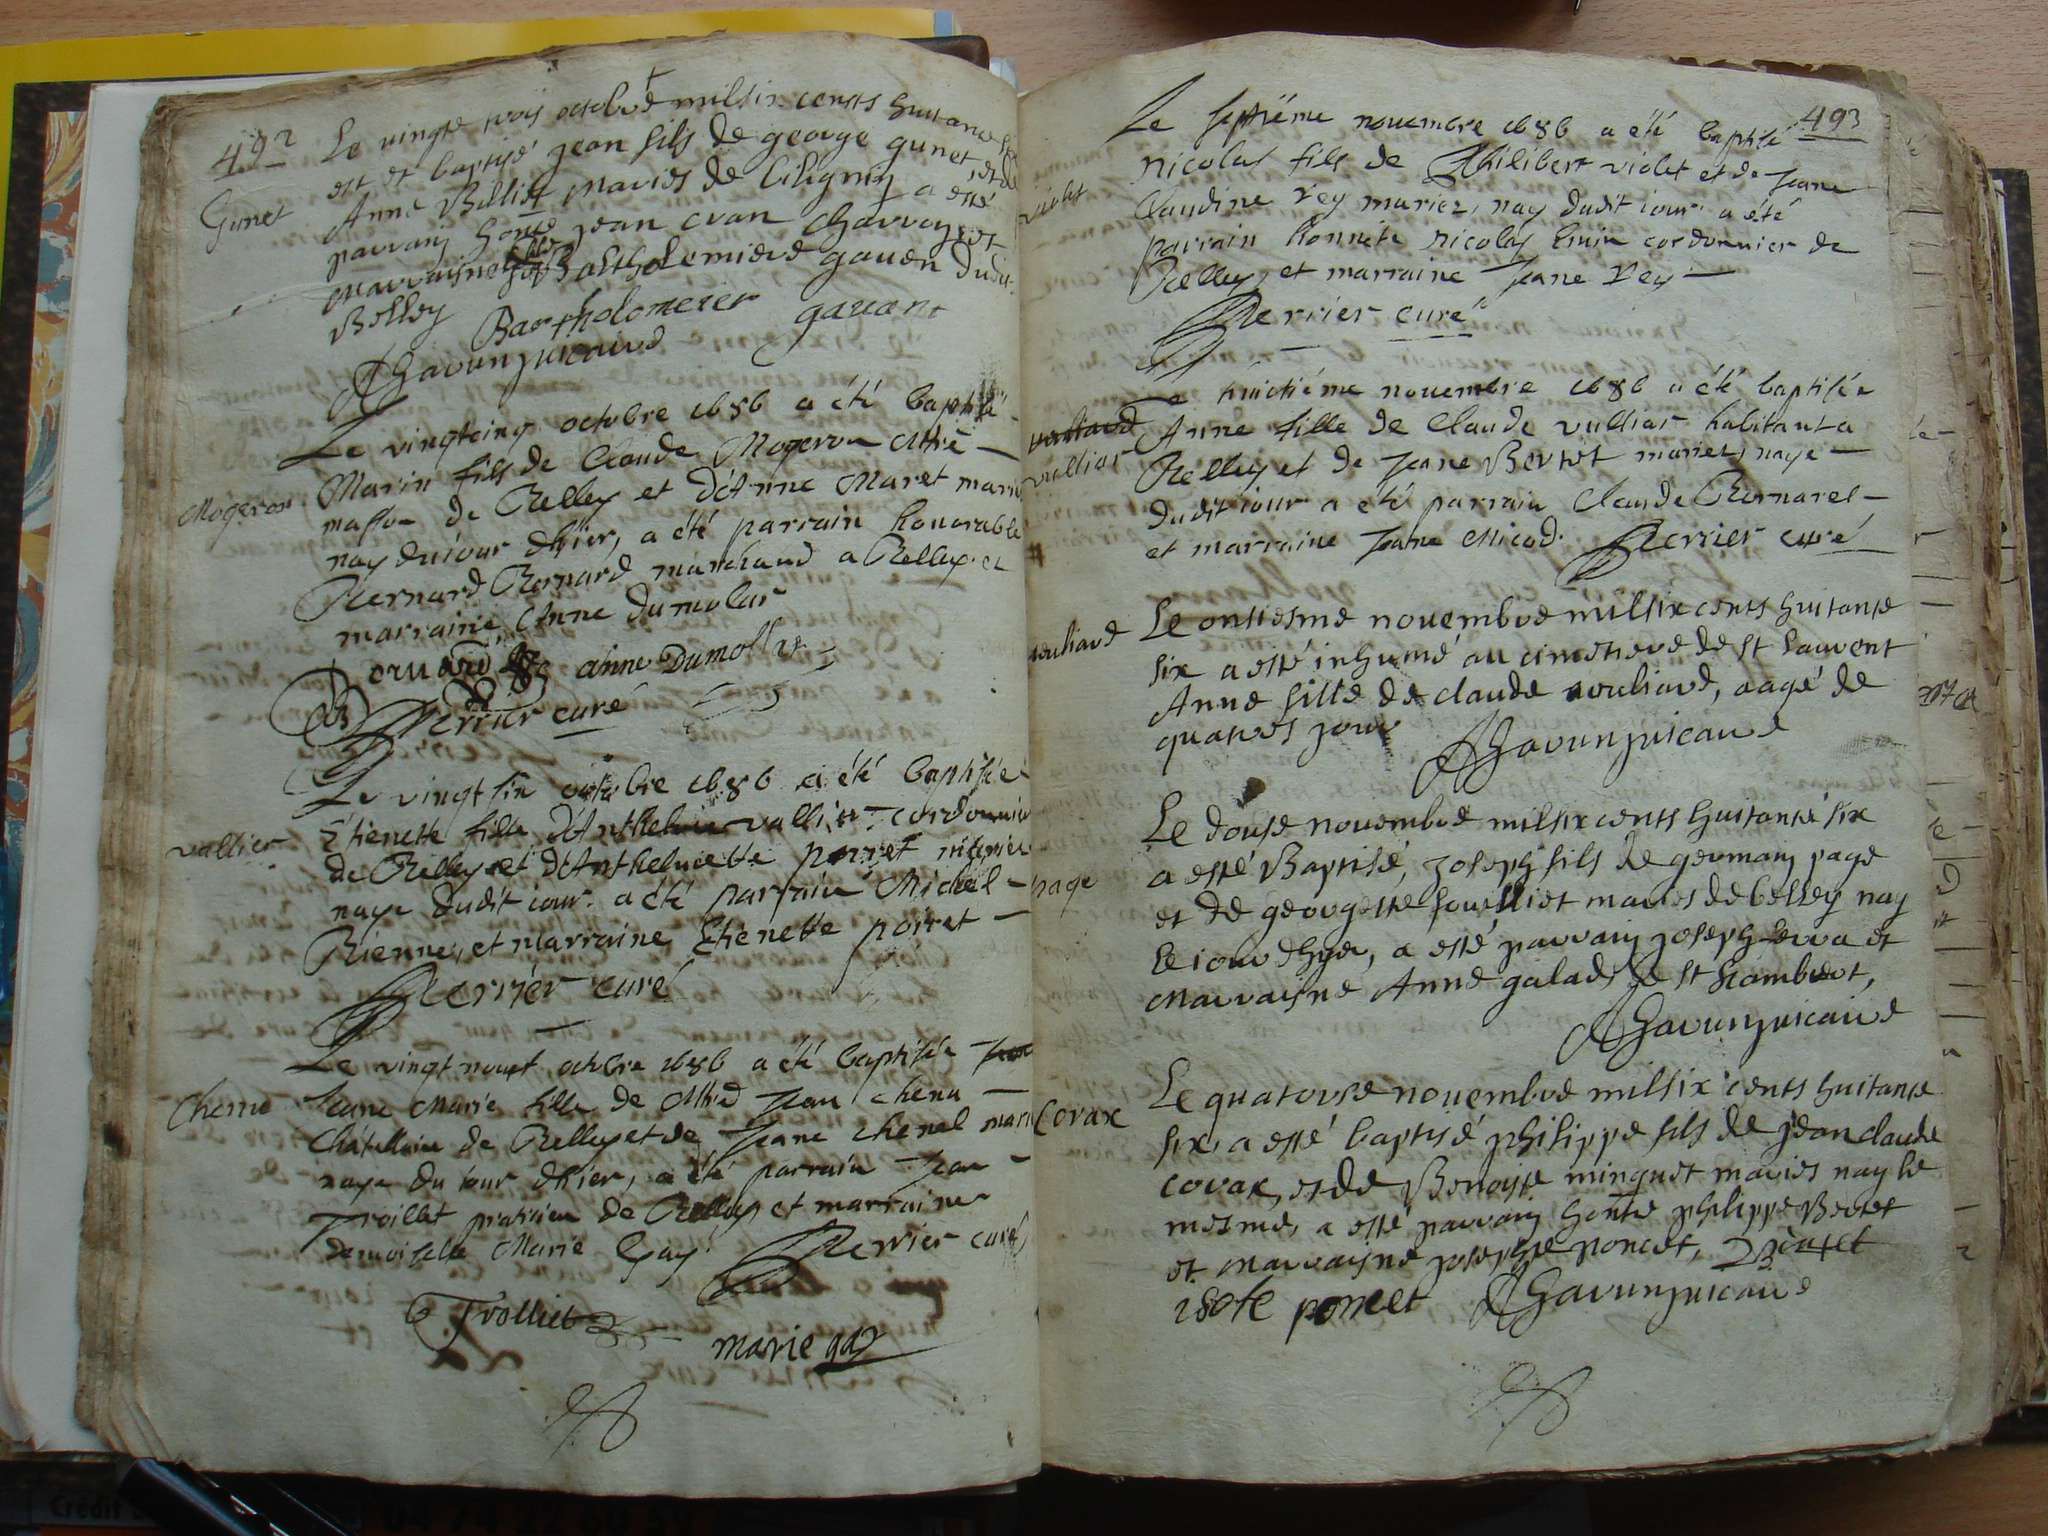 492
Le vingte trois octobre mil six cents huitante six
est et baptisé jean fils de george gunet, et de
Gunet
Anne Billiet mariés de Biligniy a esté
parrain jean cran
marraisne Bartholemiere gauen dudit
Belley
Bartholomeier gauant
Le vingtcinq octobre 1686 a été baptisé
Marin fils de Claude Mogeron Mtre
Mogeron
masson de Belley et d'Anne Maret mariez
nay du iour dhier, a été parrain honorable
Bernard Bernard marchand a Belley et
marraine Anne Dumolar
Bernard anne Dumollar
Perrier curé
Le vingt six octobre 1686 a été baptisée
vallier
Etienette fille d'Anthelme vallier cordonnier
de Belley et d'Anthelmette poiret mariez
naye dudit iour a été parrain Michel
Bienne, et marraine Etienette poiret
Perrier curé
Le vingt neuf octobre 1686 a été baptisée
Chenu
Jeane Marie fille de Jean chenu
Châtellain de Belley et de Jeane chenel mariez
naye du iour dhier, a été parrain Jean
Trolliet praticien de Belley et marraine
demoiselle Marie Gay Perrier curé
Trolliet
marie gay
493
Le septiéme novembre 1686 a été baptisé
Nicolas fils de Philibert violet et de Jeane
violet
Claudine Rey mariez, nay dudit iour a été
parrain honnete Nicolas cordonnier de
Belley, et marraine Jeane Rey
Perrier curé
Le huictiéme novembre 1686 a été baptisée
vulliar
Anne fille de Claude vulliar habitant a
Belley et de Jeane Bertet mariez, naye
dudit iour a été parrain Claude Bernard
et marraine Jeane Micod. Perrier curé
Le onsiesme nouembre mil six cents huitante
six a esté inhumé au cimetiere de st laurent
Anne fille de claude vouliard, aagé de
quatres jour
Le douse nouembre mil six cents huitante six
a esté Baptisé, joseph fils de germain page
page
et de georgette fouilliet mariés de belley nay
le iour d'hyer, a esté parrain joseph et
Marraisne Anne galade de st
Le quatorse nouembre mil six cents huitante
Corax
six, a esté baptisé philippe fils de jean claude
corax, et de Benoiste minguet mariés nay le
mesme, a esté parrain philippe Bertet
et marraisne josephte poncet, Bertet
isofe poncet